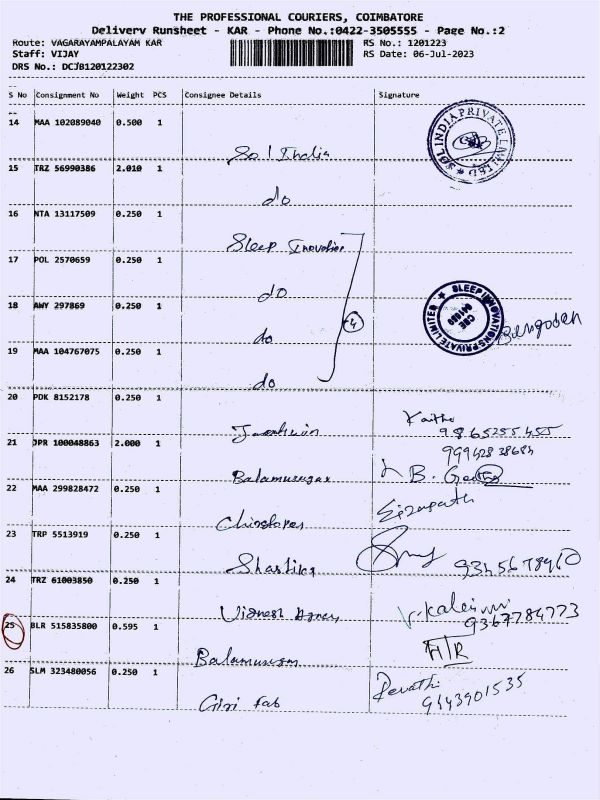 THE PROFESSIONAL COURIERS, COIMBATORE
Delivery Runsheet - KAR - Phone No.:0422-3505555 - Page No.:2
Route: VAGARAYAMPALAYAM KAR RS No.: 1201223
Staff: VIJAY RS Date: 06-Jul-2023
DRS No.: DCJB120122302
S No Consignment No Weight PCS Consignee Details Signature
14 MAA 102089040 0.500 1
SOL INDIA PRIVATE LIMITED
15 TRZ 56990386 2.010 1
do
16 NTA 13117509 0.250 1
Sleep Inovation
17 POL 2570659 0.250 1
do
18 AWY 297869 0.250 1
do
4
SLEEP INNOVATIONS PRIVATE LIMITED
CBE
641659
19 MAA 104767075 0.250 1
do
20 PDK 8152178 0.250 1
9865255455
21 JPR 100048863 2.000 1
Balamurugan
B.
22 MAA 299828472 0.250 1
23 TRP 5513919 0.250 1
Shastika
9345678960
24 TRZ 61003850 0.250 1
9367784773
25 BLR 515835800 0.595 1
H/R
26 SLM 323480056 0.250 1
Giri Fab
Revathi
9443901535